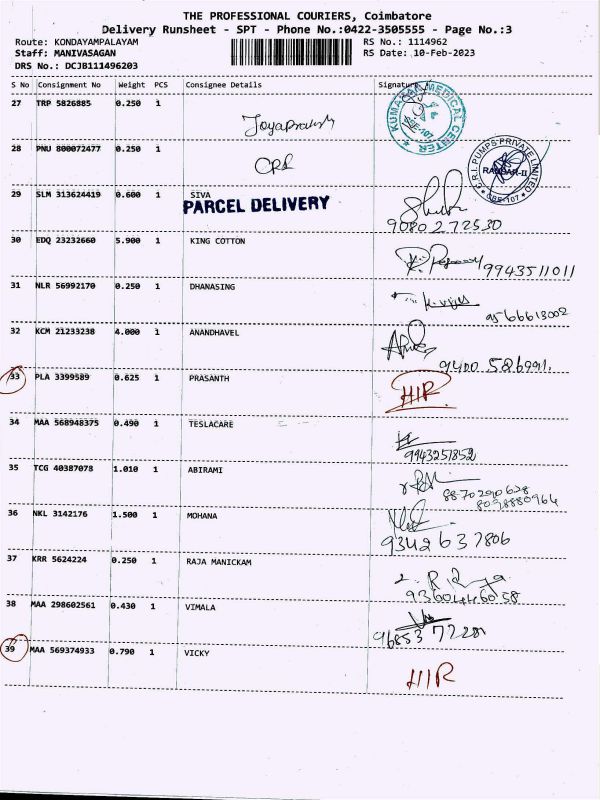 THE PROFESSIONAL COURIERS, Coimbatore
Delivery Runsheet - SPT - Phone No.:0422-3505555 - Page No.:3
Route: KONDAYAMPALAYAM RS No.: 1114962
Staff: MANIVASAGAN RS Date: 10-Feb-2023
DRS No.: DCJB111496203
S No Consignment No Weight PCS Consignee Details Signature
27 TRP 5826885 0.250 1
KUMARAN MEDICAL CENTER
28 PNU 800072477 0.250 1
C.R.I. PUMPS PRIVATE LIMITED
29 SLM 313624419 0.600 1 SIVA
PARCEL DELIVERY
9080272530
30 EDQ 23232660 5.900 1 KING COTTON
9943511011
31 NLR 56992170 0.250 1 DHANASING
9566613002
32 KCM 21233238 4.000 1 ANANDHAVEL
9400 586991.
33 PLA 3399589 0.625 1 PRASANTH
HIR
34 MAA 568948375 0.490 1 TESLACARE
9943251852
35 TCG 40387078 1.010 1 ABIRAMI
36 NKL 3142176 1.500 1 MOHANA
9342637806
37 KRR 5624224 0.250 1 RAJA MANICKAM
9360446058
38 MAA 298602561 0.430 1 VIMALA
39 MAA 569374933 0.790 1 VICKY
HIR